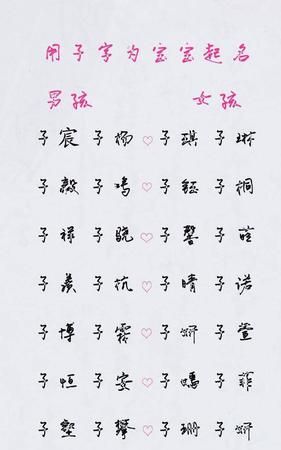 用子字为宝宝起名
男孩 女孩
子宸 子杨 ♡ 子琪 子琳
子毅 子鸣 ♡ 子钰 子桐
子祥 子骁 ♡ 子馨 子萱
子羲 子杭 ♡ 子晴 子诺
子博 子霖 ♡ 子妍 子萱
子恒 子安 ♡ 子嫣 子菲
子墅 子攀 ♡ 子珊 子妍